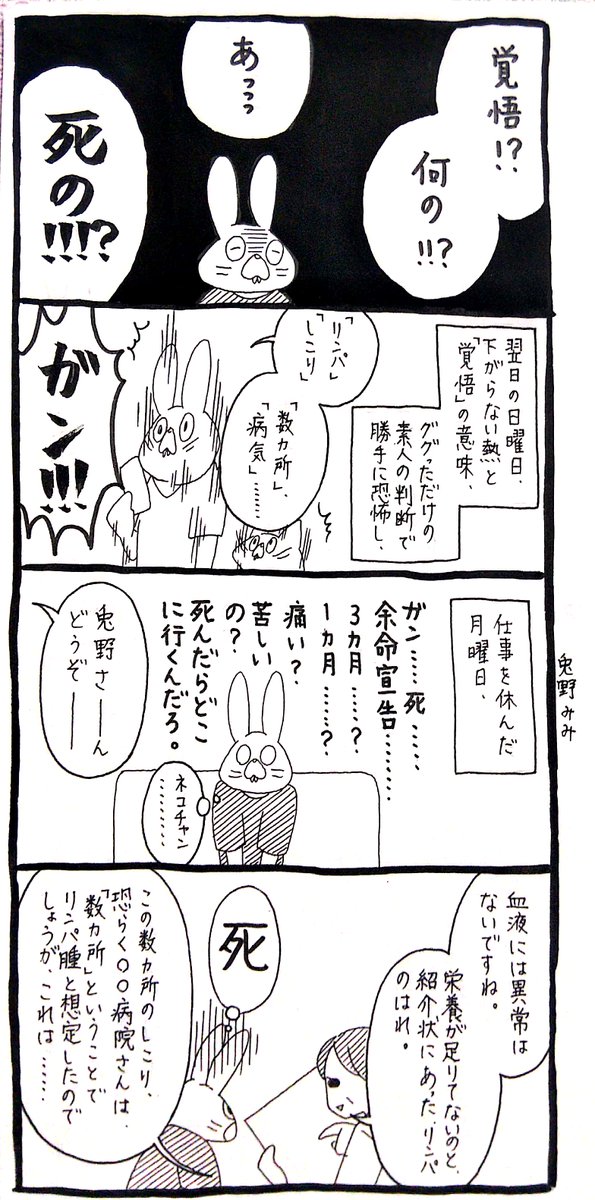 覚悟!?
何の!!?
あっっっ
死の!!!?
翌日の日曜日、
下がらない熱と
「覚悟」の意味、
ググっただけの
素人の判断で
勝手に恐怖し、
「リンパ」
「しこり」
「数カ所」、
「病気」……
ガン!!!
仕事を休んだ
月曜日、
ガン……死……
余命宣告………
3カ月……?
1カ月……?
痛い?
苦しい
の?
死んだらどこ
に行くんだろ。
ネコチャン
………
兎野さーーん
どうぞーー
兎野みみ
血液には異常は
ないですね。
栄養が足りてないのと、
紹介状にあったリンパ
のはれ。
死
この数カ所のしこり、
恐らく〇〇病院さんは、
「数カ所」ということで
リンパ腫と想定したので
しょうが、これは……